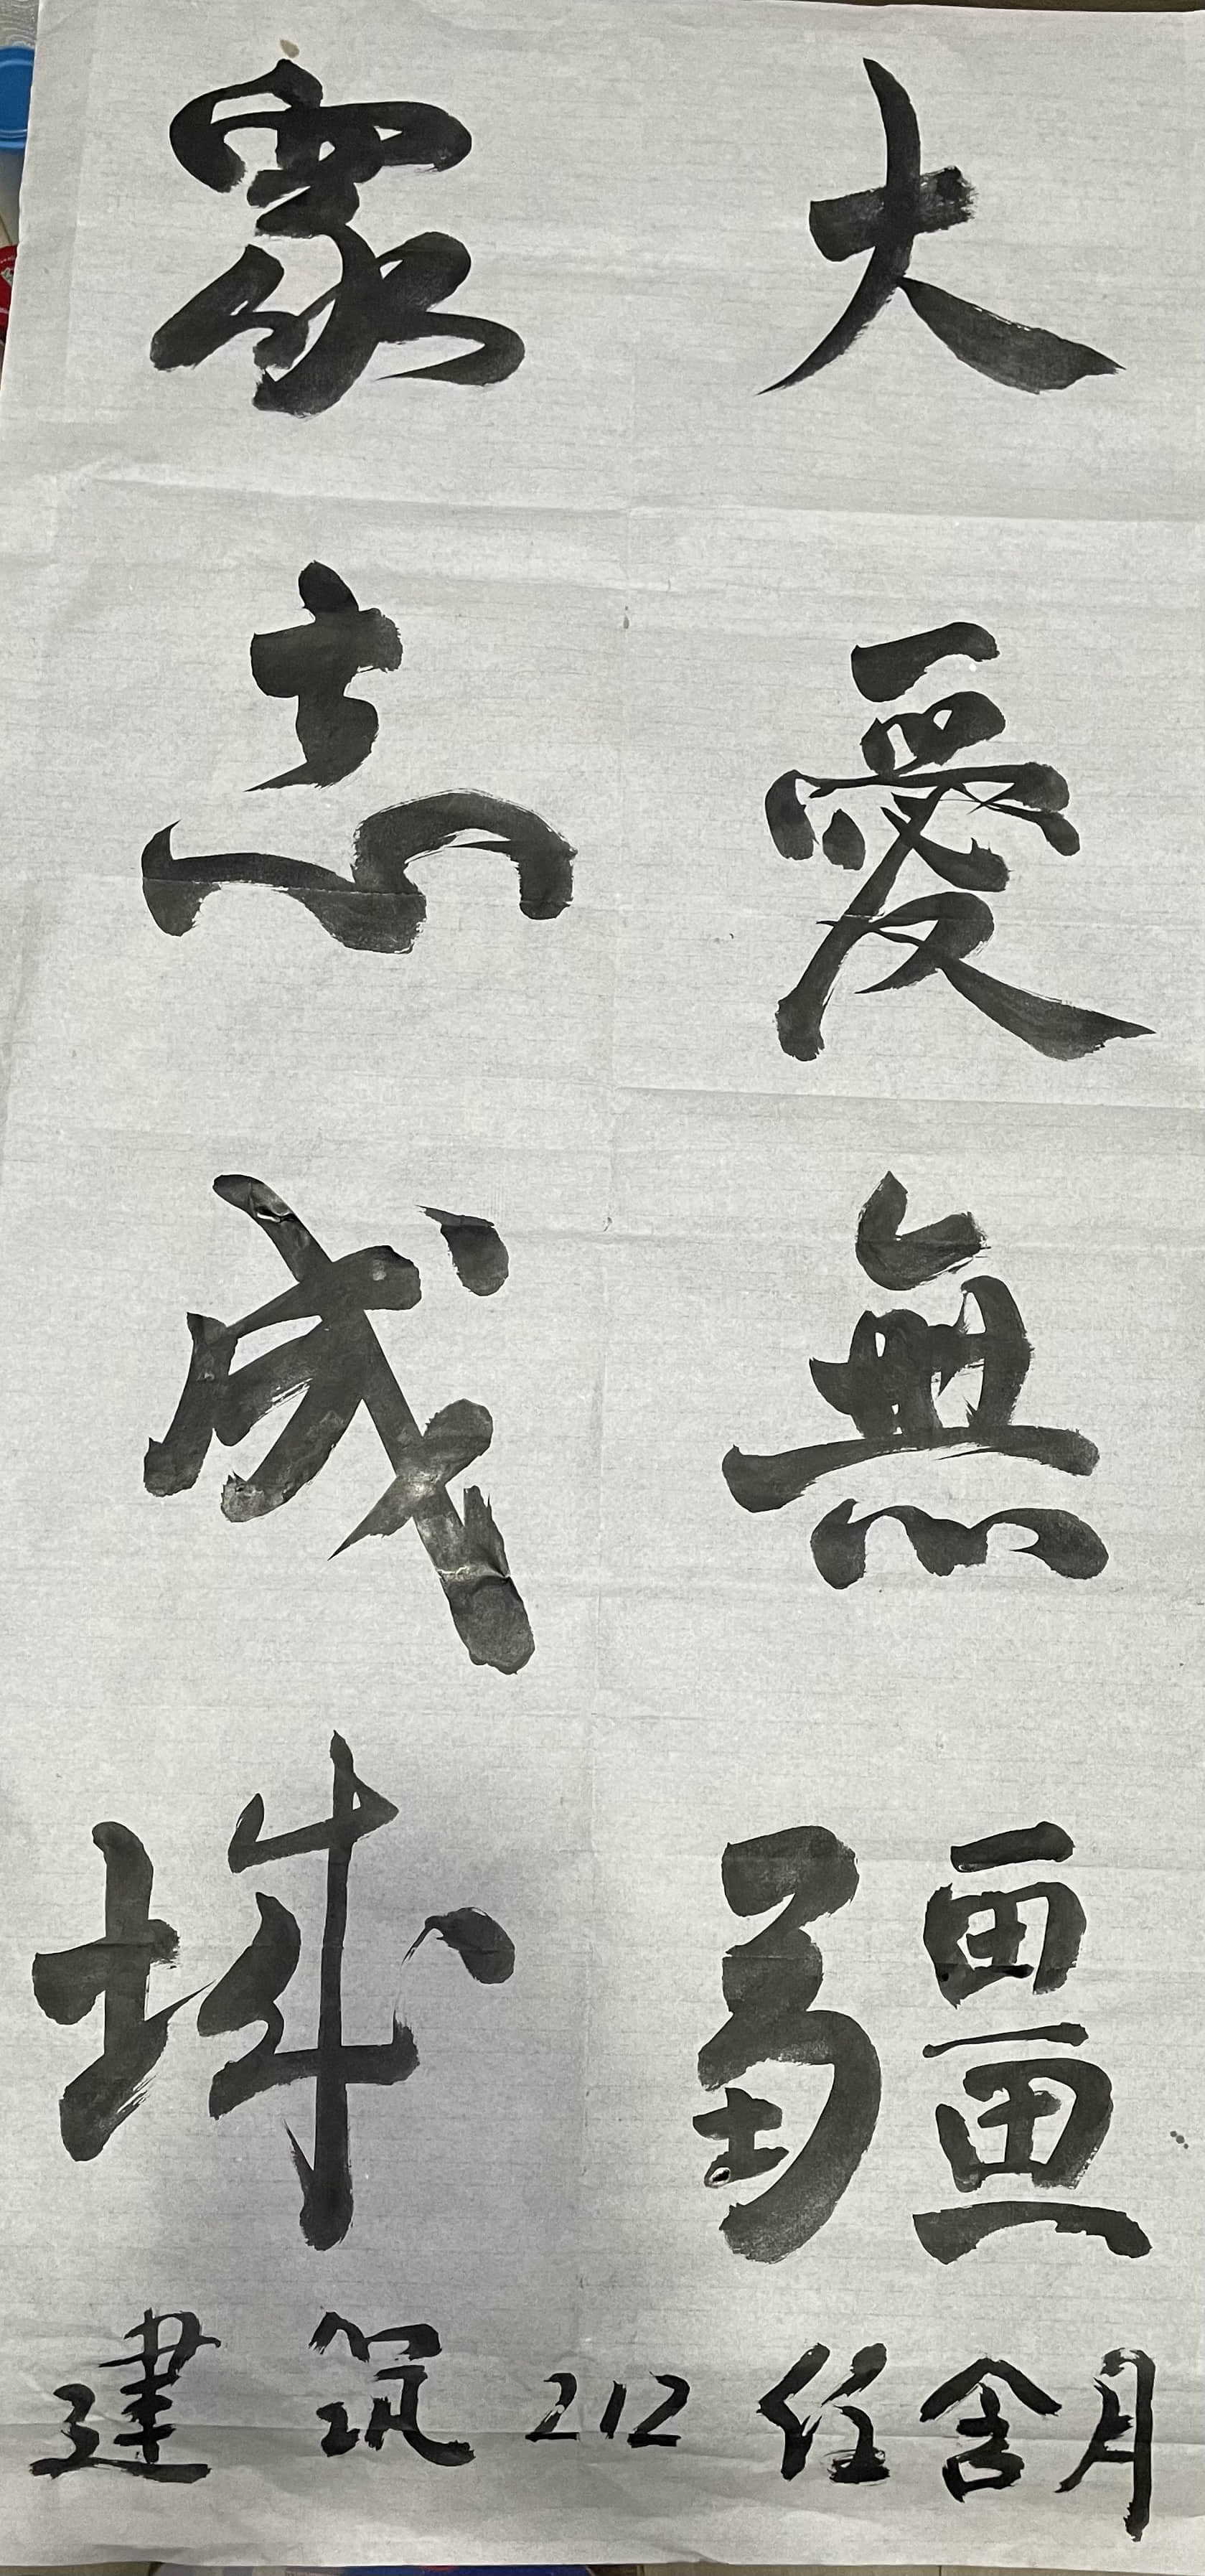 大愛無疆
眾志成城
建筑212任含月